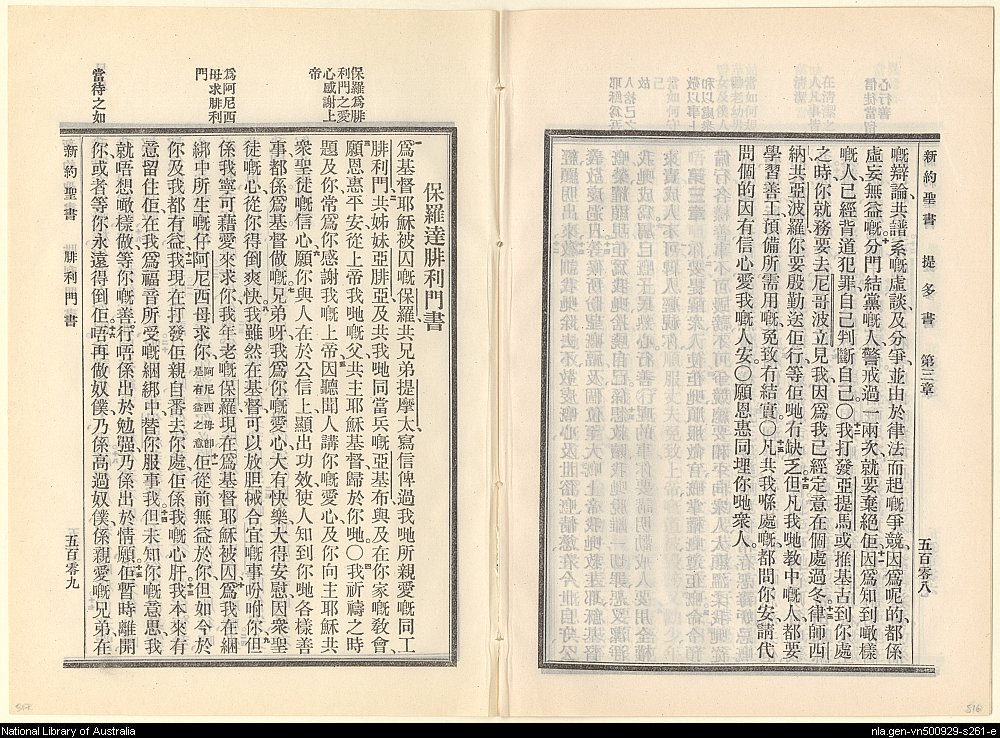 新約聖書 提多書 第三章 五百零八
嘅辯論共譜系嘅虛談及分爭並由於律法而起嘅爭競因爲呢的都係
虛妄無益嘅十分門結黨嘅人警戒過一兩次就要棄絕佢因爲知到噉樣
嘅人已經背道犯罪自己判斷自己〇十二我打發亞提馬或推基古到你處
之時你就務要去尼哥波立見我因爲我已經定意在個處過冬十三律師西
納共亞波羅你要殷勤送佢行等佢哋有缺乏十四但凡我哋教中嘅人都要
學習善工預備所需用嘅免致有結實〇十五凡共我喺處嘅都問你安請代
問個的因有信心愛我嘅人安〇願恩惠同埋你哋衆人
心行善
信徒當向
保羅達腓利門書
一爲基督耶穌被囚嘅保羅共兄弟提摩太寫信俾過我哋所親愛嘅同工
腓利門二共姊妹亞腓亞及共我哋同當兵嘅亞基布與及在你家嘅敎會
三願恩惠平安從上帝我哋嘅父共主耶穌基督歸於你哋〇四我祈禱之時
題及你常爲你感謝我嘅上帝五因聽聞人講你嘅愛心及你向主耶穌共
衆聖徒嘅信心六願你與人在於公信上顯出功效使人知到你哋各樣善
事都係爲基督做嘅七兄弟呀我爲你嘅愛心大有快樂大得安慰因衆聖
徒嘅心從你得倒爽快八我雖然在基督可以放胆械合宜嘅事吩咐你九但
係我寧可藉愛來求你我年老嘅保羅現在爲基督耶穌被囚十爲我在綑
綁中所生嘅仔阿尼西母求你阿尼西母卽是有益之意十一佢從前無益於你但如今於
你及我都有益十二我現在打發佢親自番去你處佢係我嘅心肝十三我本來有
意留住佢在我爲福音所受嘅綑綁中替你服事我十四但未知你嘅意思我
就唔想噉樣做等你嘅善行唔係出於勉强乃係出於情願十五佢暫時離開
你或者等你永遠得倒佢十六唔再做奴僕乃係高過奴僕係親愛嘅兄弟在
新約聖書 腓利門書 五百零九
保羅爲腓
利門之愛
心感謝上
帝
爲阿尼西
母求腓利
門
當待之如
National Library of Australia
nla.gen-vn500929-s261-e